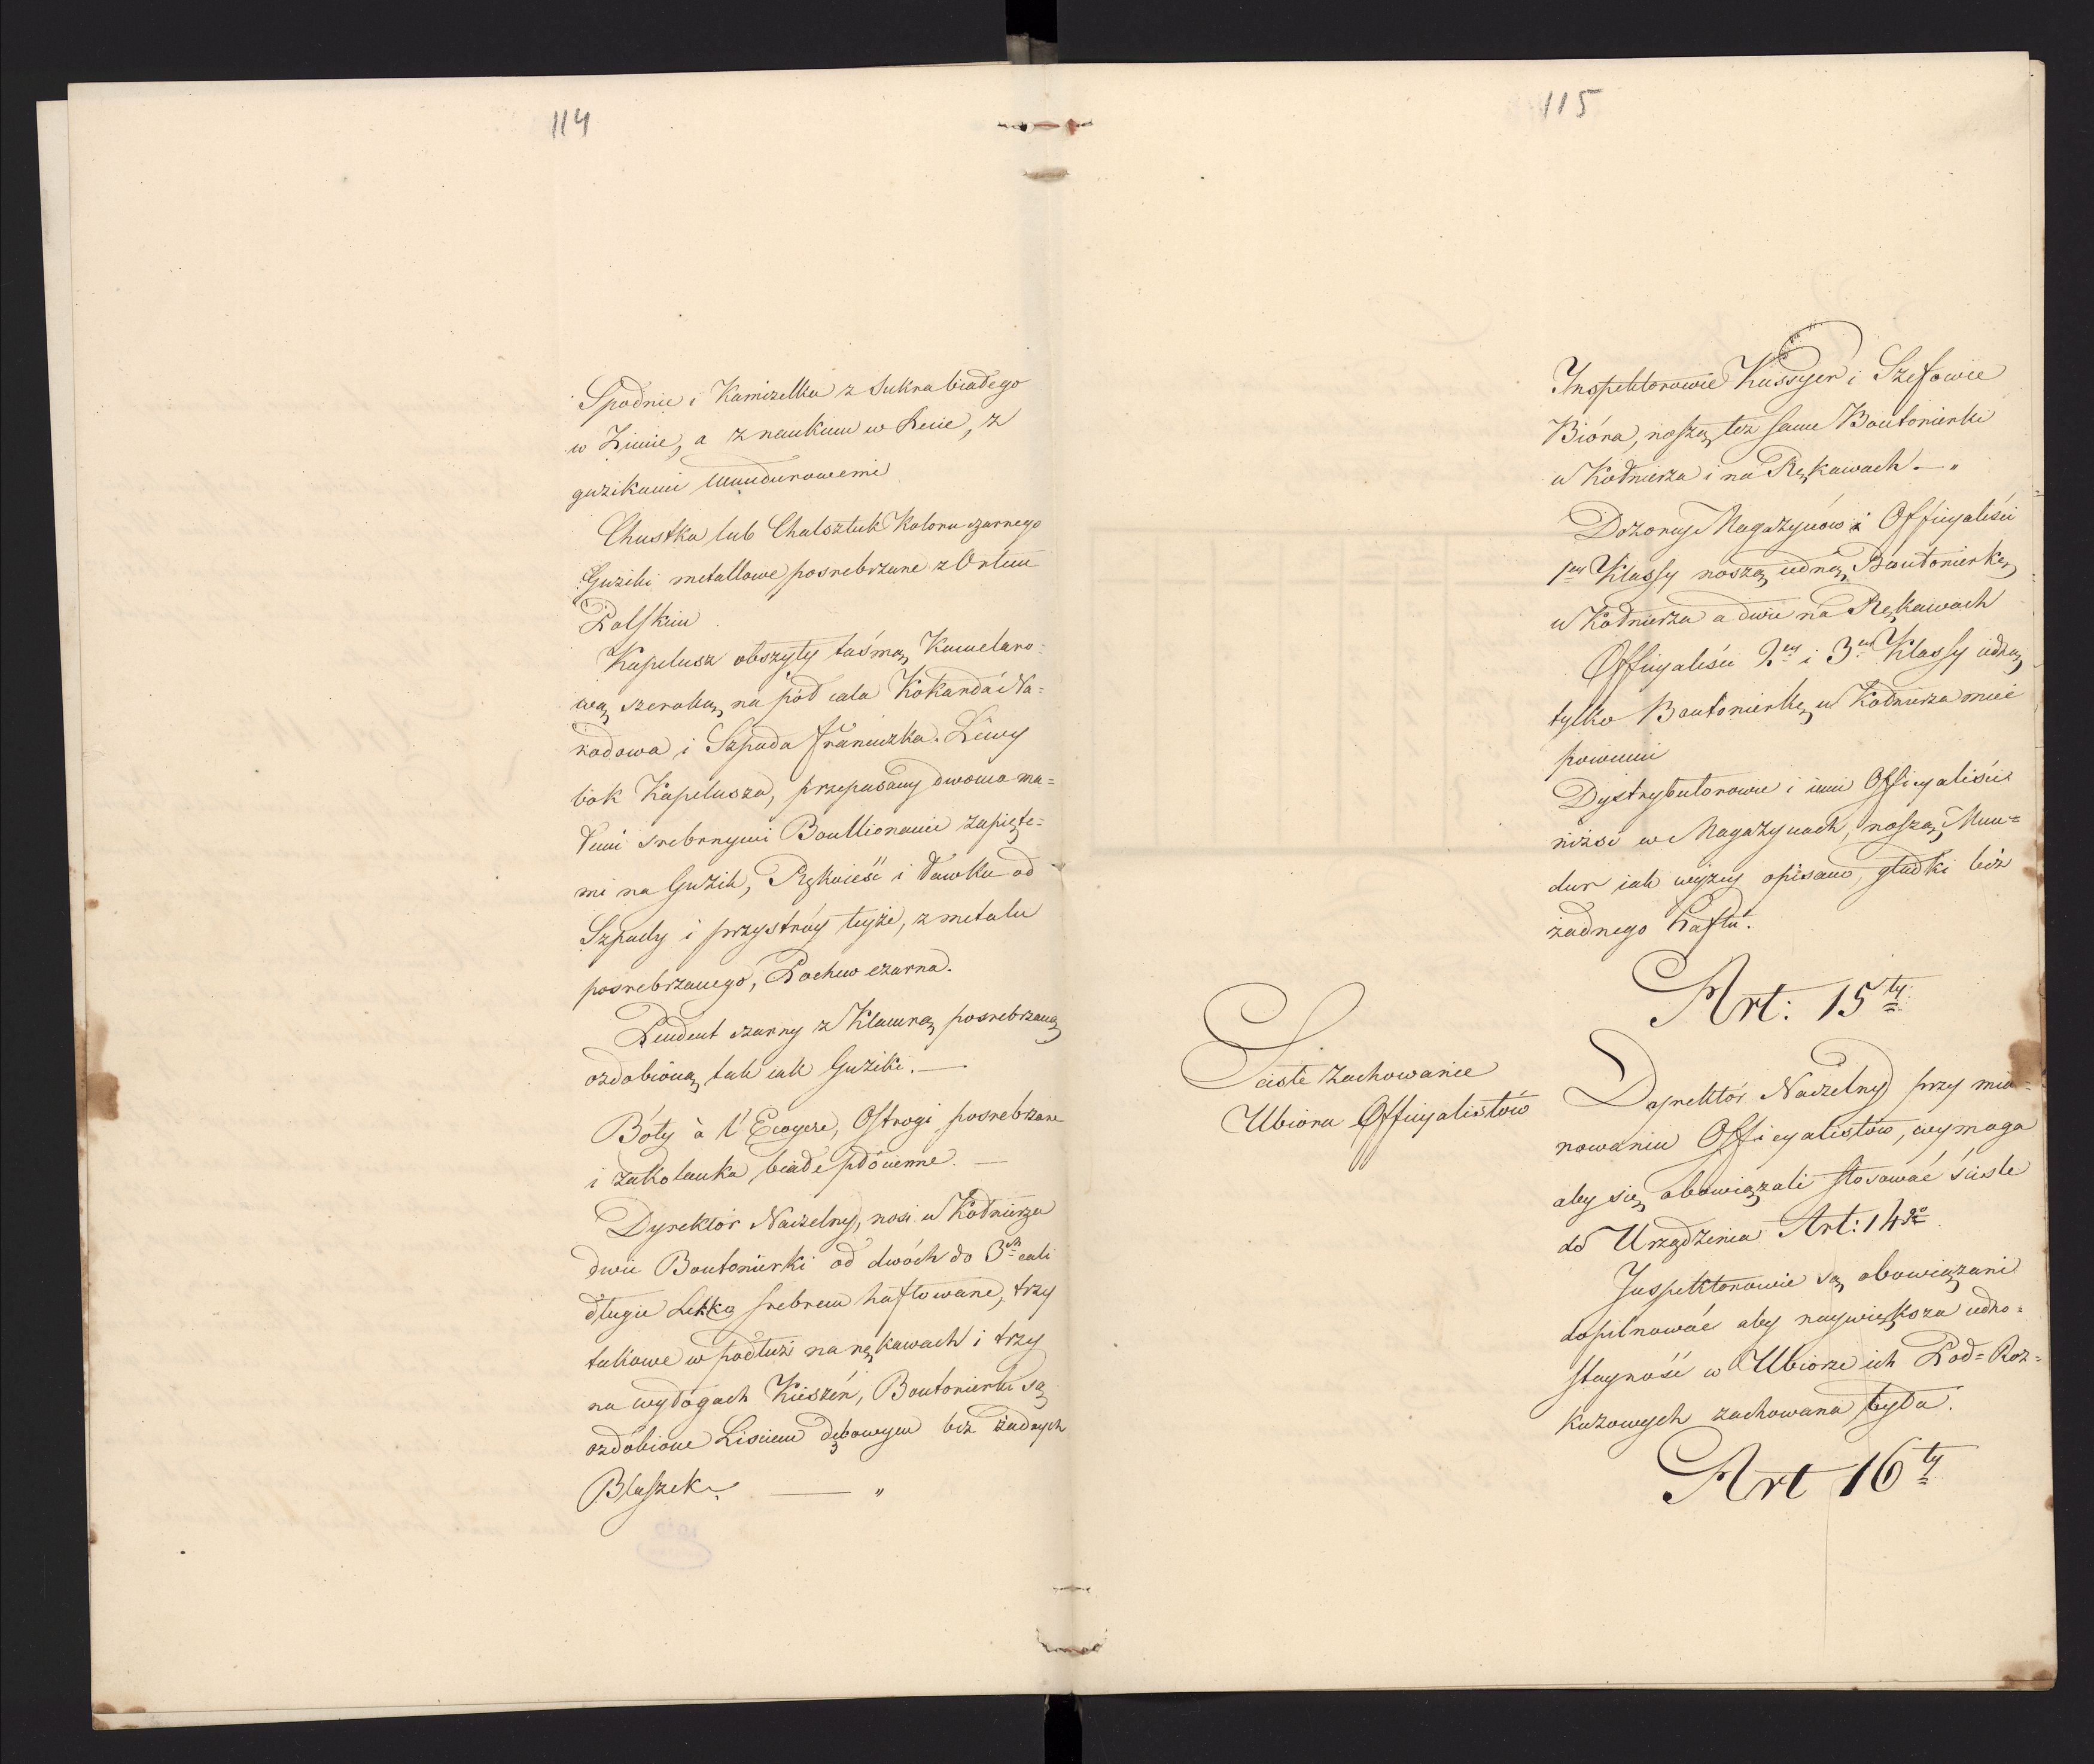 114
Spodnie i Kamizelka z Sukna białego
w Zimie, a z nankinu w Lecie, z
guzikami mundurowemi
Chustka lub Chalsztuk Koloru czarnego
Guziki metallowe posrebrzane z Orłem
Polskim
Kapelusz obszyty taśmą Kamelaro=
wą szeroką na pół cala Kokarda Na=
rodowa i Szpada francuzka. Lewy
bok Kapelusza, przepasany dwoma ma=
łemi srebrnymi Boullionami zapięte=
mi na Guzik, Rękoieść i Gawka od
Szpady i przystróy teyże, z metalu
posrebrzanego, Pochwa czarna.
Pendent czarny z Klamrą posrebrzaną
ozdobioną tak iak Guziki. —
Bóty à l'Ecuyere, Ostrogi posrebrzane
i zakolanka białe płócienne. —
Dyrektór Naczelny, nosi u Kołnierza
dwie Boutonierki od dwóch do 3ch cali
długie Lekko srebrem haftowane, trzy
takowe w podłuż na rękawach i trzy
na wyłogach Kieszeń, Boutonierki są
ozdobione Lisciem dębowym bez żadnych
Blaszek. — "
115
Inspektorowie Kassyer i Szefowie
Bióra, noszą też same Boutonierki
u Kołnierza i na Rękawach — "
Dozorcy Magazynów i Officyaliści
1ey Klassy noszą iedną Boutonierkę
u Kołnierza a dwie na Rękawach
Officyaliści 2ey i 3ey Klassy iedną
tylko Boutonierkę u Kołnierza mieć
powinni
Dystrybutorowie i inni Officyaliści
niżsi w Magazynach, noszą Mun=
dur iak wyżey opisano, gładki bez
żadnego haftu.
Art: 15ty
Scisłe zachowanie
Ubioru Officyalistów
Dyrektór Naczelny przy mia=
nowaniu Officyalistów, wymaga
aby się obowiązali stosować ściśle
do Urządzenia Art: 14go
Inspektorowie są obowiązani
dopilnować aby naywiększa iedno=
staynosć w Ubiorze ich Pod=Roz=
kazowych zachowana była.
Art 16ty